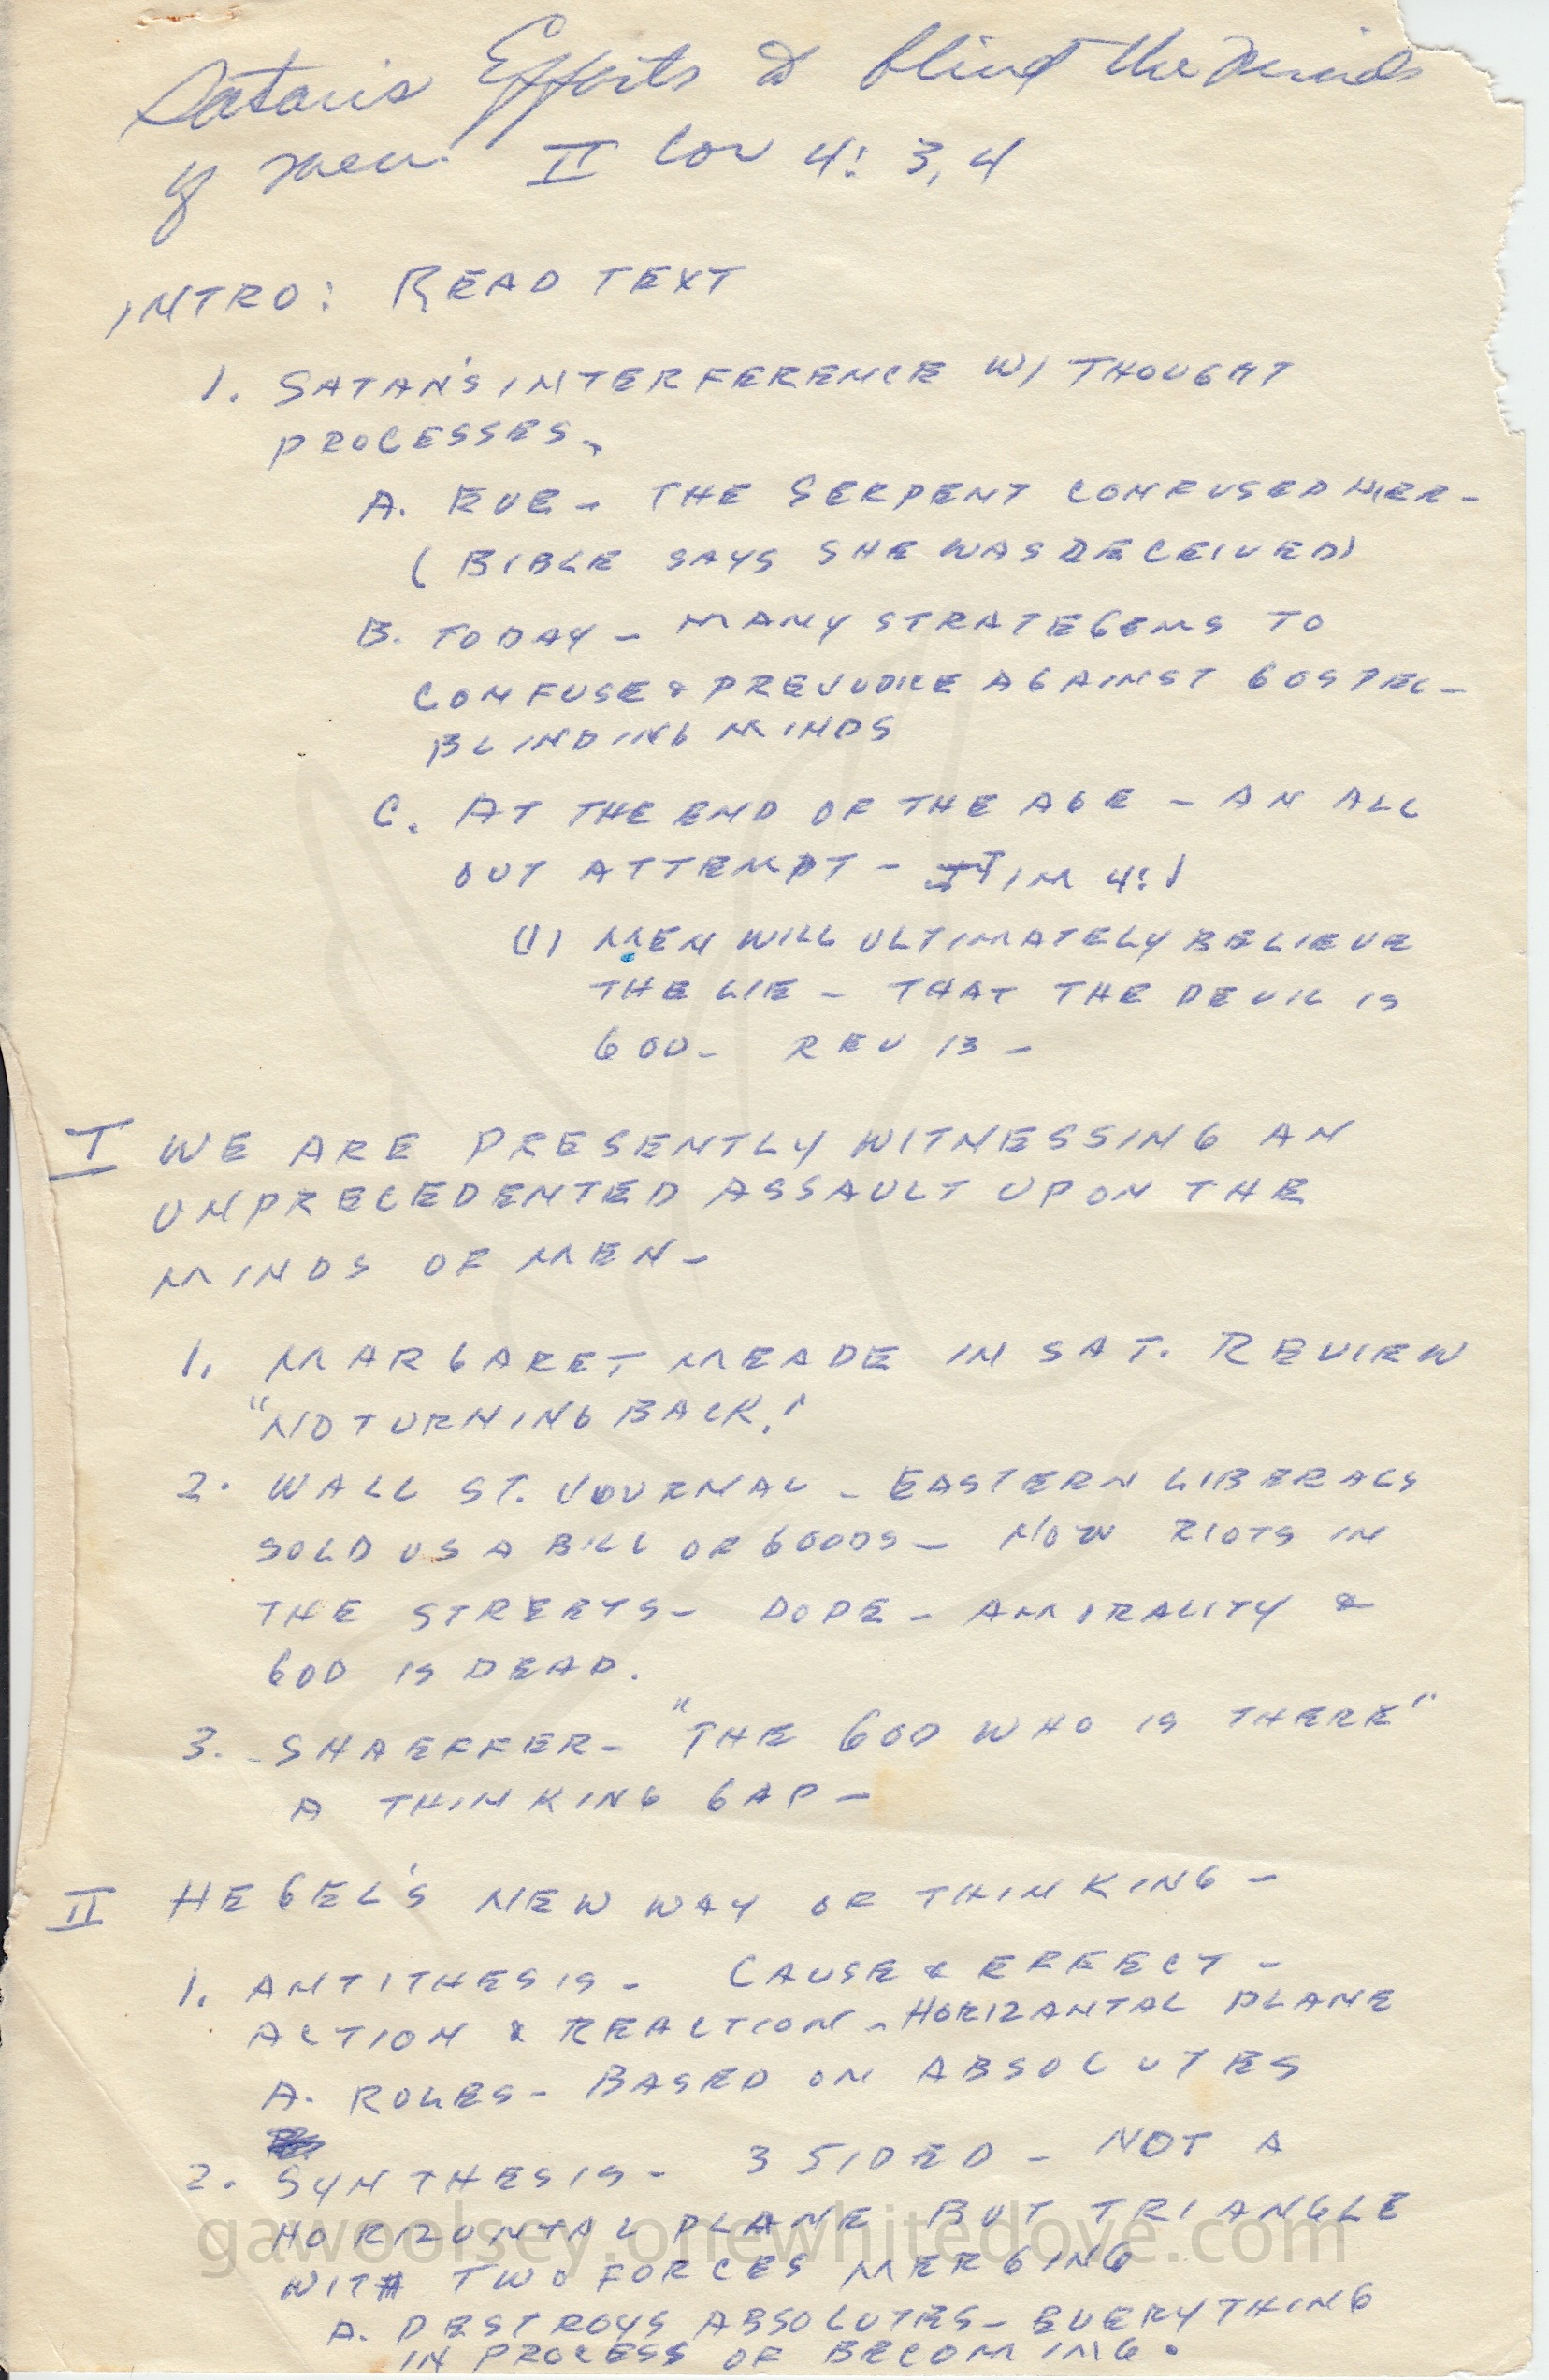 Satan's Efforts to blind the Minds
of men. II Cor 4: 3, 4
INTRO: READ TEXT
1. SATAN'S INTERFERENCE W/ THOUGHT
PROCESSES.
A. EVE - THE SERPENT CONFUSED HER -
( BIBLE SAYS SHE WAS DECEIVED)
B. TODAY - MANY STRATEGEMS TO
CONFUSE & PREJUDICE AGAINST GOSPEL -
BLINDING MINDS
C. AT THE END OF THE AGE - AN ALL
OUT ATTEMPT - I TIM 4:1
(1) MEN WILL ULTIMATELY BELIEVE
THE LIE - THAT THE DEVIL IS
GOD - REV 13 -
I WE ARE PRESENTLY WITNESSING AN
UNPRECEDENTED ASSAULT UPON THE
MINDS OF MEN -
1. MARGARET MEADE IN SAT. REVIEW
"NO TURNING BACK."
2. WALL ST. JOURNAL - EASTERN LIBERALS
SOLD US A BILL OF GOODS - NOW RIOTS IN
THE STREETS - DOPE - AMORALITY &
GOD IS DEAD.
3. SHAEFFER - "THE GOD WHO IS THERE"
A THINKING GAP -
II HEGEL'S NEW WAY OF THINKING -
1. ANTITHESIS - CAUSE & EFFECT -
ACTION & REACTION - HORIZANTAL PLANE
A. ROLES - BASED ON ABSOLUTES
2. SYNTHESIS - 3 SIDED - NOT A
HORIZONTAL PLANE BUT TRIANGLE
WITH TWO FORCES MERGING
A. DESTROYS ABSOLUTES - EVERYTHING
IN PROCESS OF BECOMING.
gawoolsey.onewhitedove.com